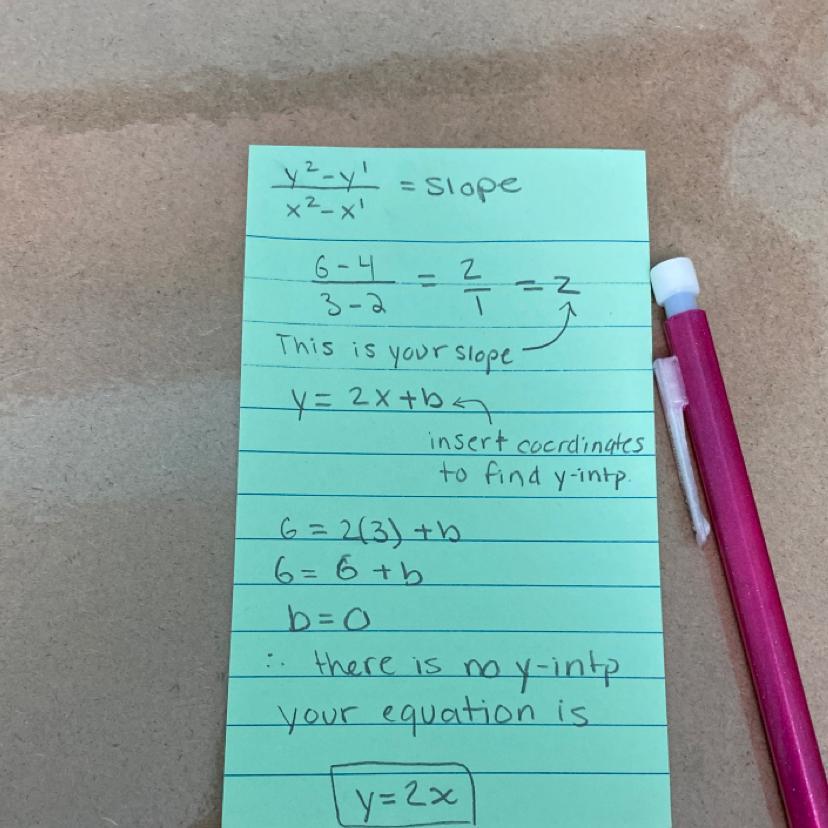 y²-y¹ / x²-x¹ = slope
6-4 / 3-2 = 2 / 1 = 2
This is your slope
y = 2x+b
insert coordinates
to find y-intp.
6 = 2(3) +b
6 = 6 +b
b = 0
∴ there is no y-intp
your equation is
y=2x